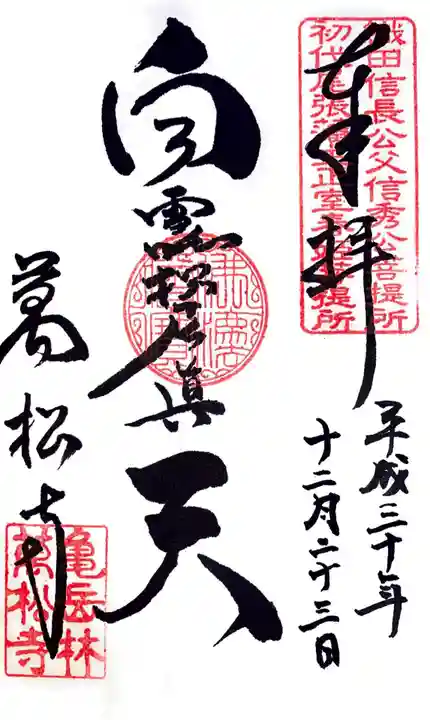 奉拝
織田信長公父信秀公菩提所
初代尾張藩主正室春姫菩提所
平成三十年
十二月二十三日
白雪稲荷眞天
萬松寺
亀岳林
萬松寺